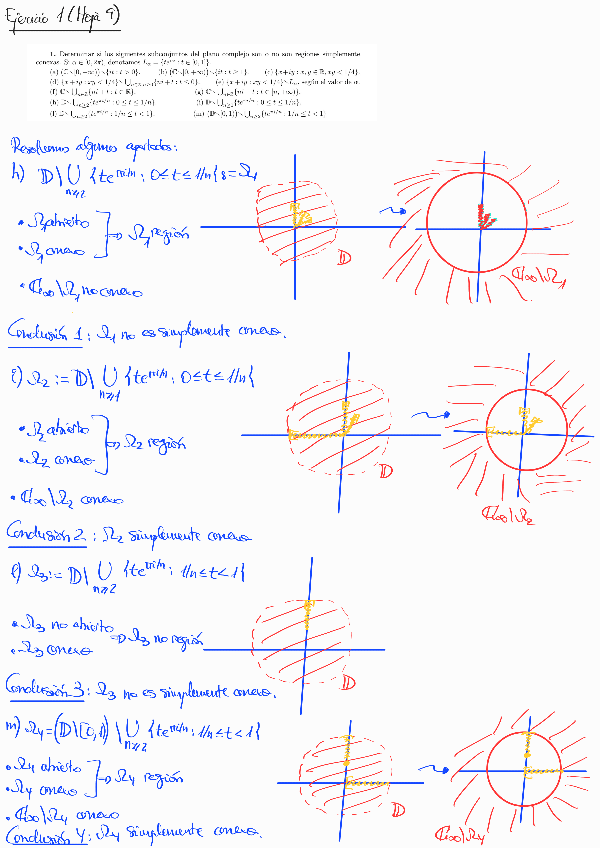 Ejercicio 1 (Hoja 9)
1. Determinar si los siguientes subconjuntos del plano complejo son o no son regiones simplemente
conexas. Si α ∈ [0, 2π), denotamos
según el valor de α.
Resolvemos algunos apartados:
h) 𝔻\⋃ {te^{πi/n} : 0≤t≤1/n} := Ω₁
n≥2
• Ω₁ abierto
• Ω₁ conexo
⇒ Ω₁ región
𝔻
ℂ∞\Ω₁
• ℂ∞\Ω₁ no conexo
Conclusión 1: Ω₁ no es simplemente conexo.
i) Ω₂ := 𝔻\⋃ {te^{πi/n} : 0≤t≤1/n}
n≥1
• Ω₂ abierto
• Ω₂ conexo
⇒ Ω₂ región
𝔻
• ℂ∞\Ω₂ conexo
ℂ∞\Ω₂
Conclusión 2: Ω₂ simplemente conexo
l) Ω₃ := 𝔻\⋃ {te^{πi/n} : 1/n≤t<1}
n≥2
• Ω₃ no abierto
• Ω₃ conexo
⇒ Ω₃ no región
𝔻
Conclusión 3: Ω₃ no es simplemente conexo.
m) Ω₄ = (𝔻\[0,1)) \ ⋃ {te^{πi/n} : 1/n≤t<1}
n≥2
• Ω₄ abierto
• Ω₄ conexo
⇒ Ω₄ región
𝔻
• ℂ∞\Ω₄ conexo
ℂ∞\Ω₄
Conclusión 4: Ω₄ simplemente conexo.